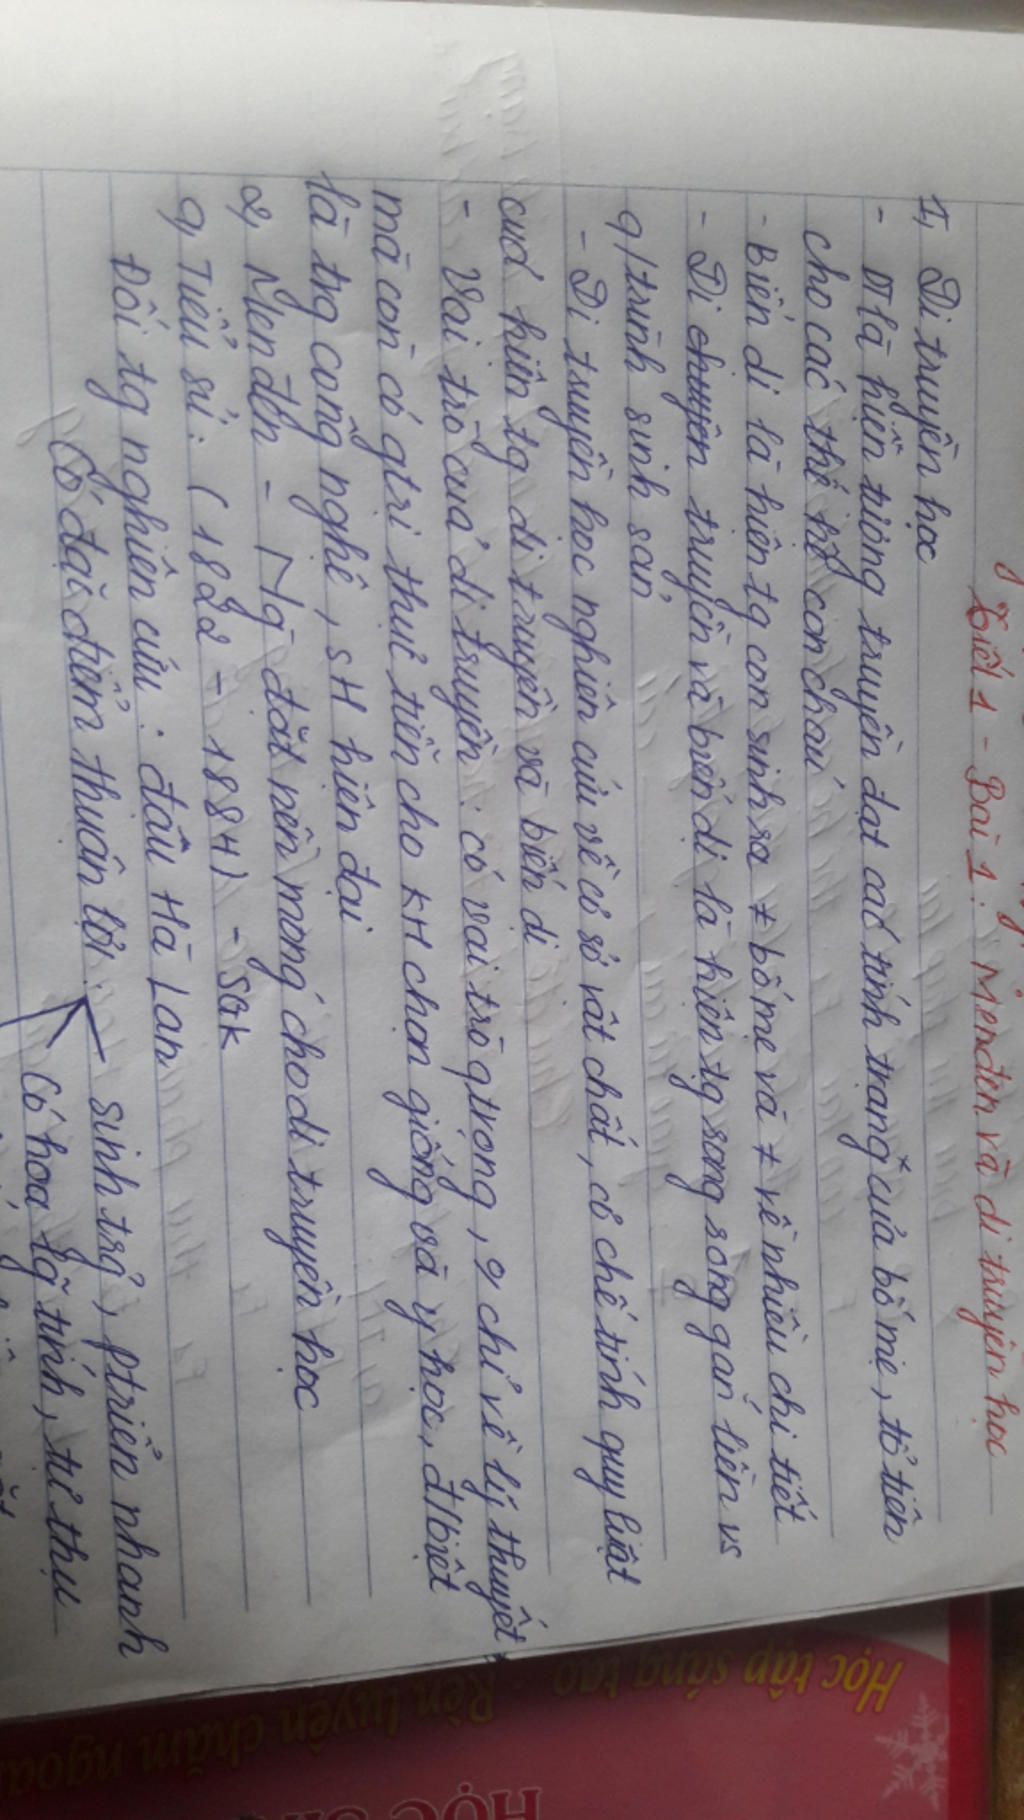 Tiết 1 - Bài 1: Menđen và di truyền học
1, Di truyền học
- DT là hiện tượng truyền đạt các tính trạng của bố mẹ, tổ tiên
cho các thế hệ con cháu
- Biến dị là hiện tg con sinh ra ≠ bố mẹ và ≠ về nhiều chi tiết
- Di truyền và biến dị là hiện tg song song gắn liền vs
q/trình sinh sản
- Di truyền học nghiên cứu về cơ sở vật chất, cơ chế tính quy luật
của hiện tg di truyền và biến dị
- Vai trò của di truyền: có vai trò qtrọng, o chỉ về lý thuyết
mà còn có gtrị thực tiễn cho KH chọn giống và y học, đ/biệt
là trg công nghệ, SH hiện đại
2, Menđen - Ng đặt nền móng cho di truyền học
a, Tiểu sử: (1822 - 1884) - SGK
Đối tg nghiên cứu: đậu Hà Lan
Có đặc điểm thuận lợi:
sinh trg, ptriển nhanh
Có hoa lg tính, tự thụ
Học tập sáng tạo - Rèn luyện chăm ngoan
HỌC